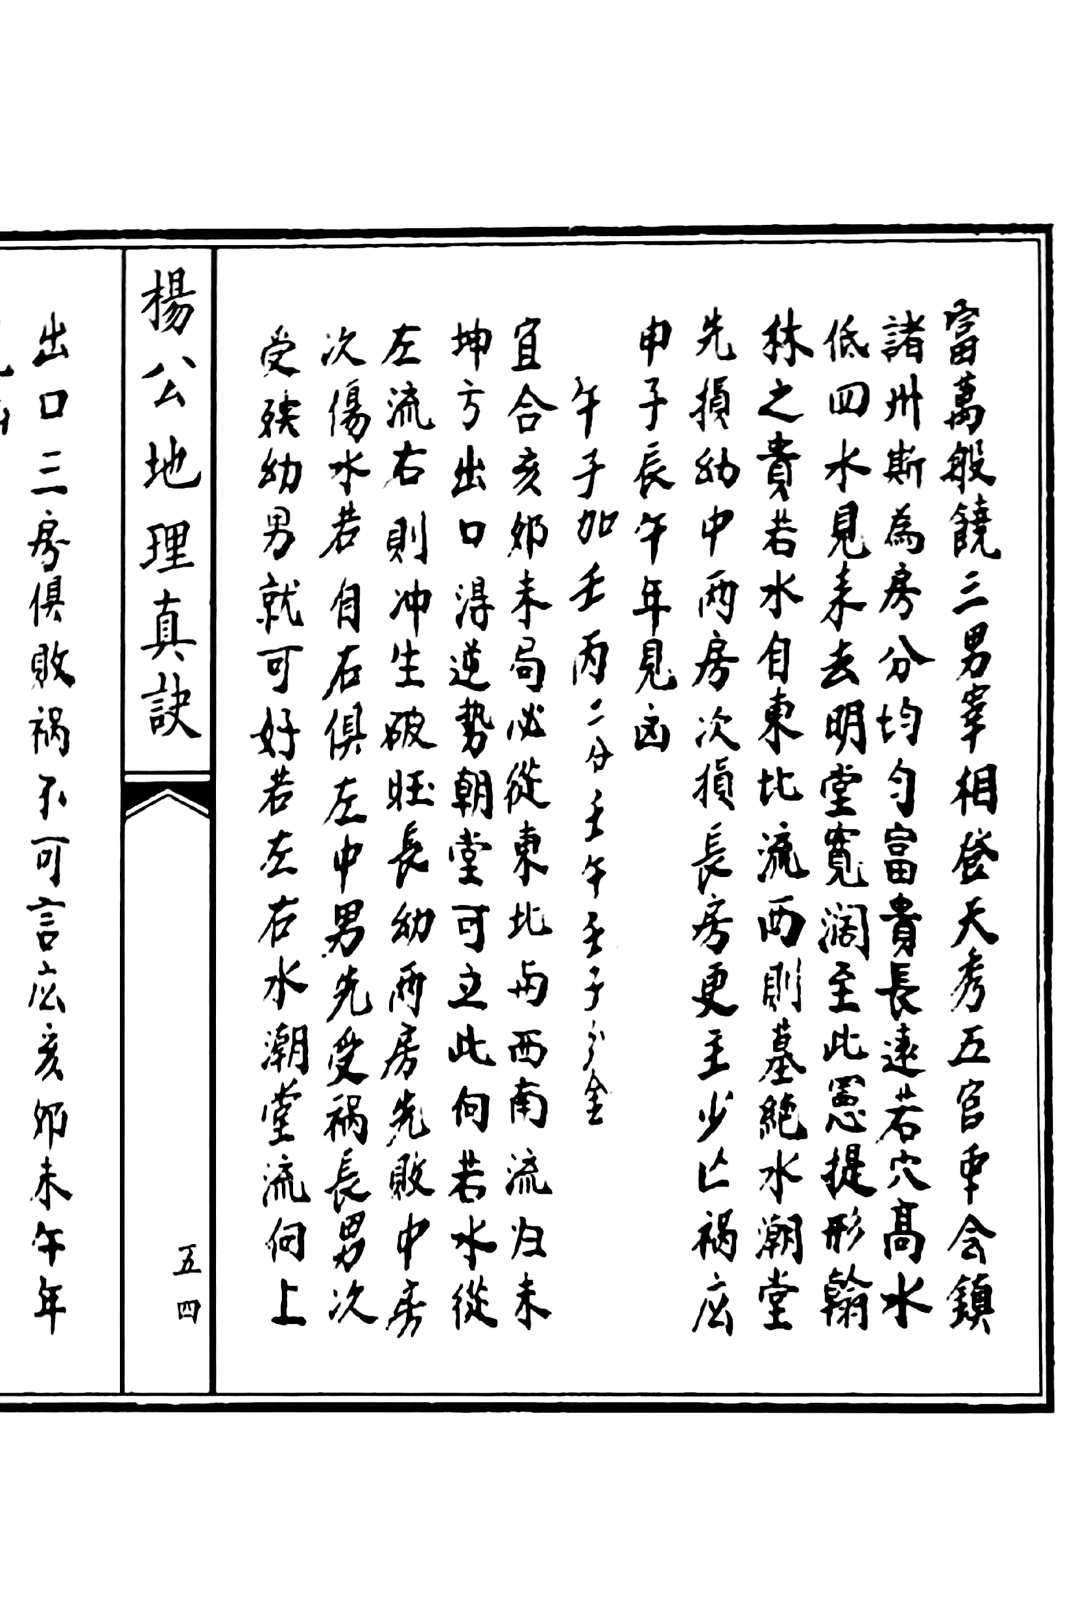 富萬般饒三男宰相登天秀五官申会鎮
諸州斯為房分均匀富貴長遠若穴高水
低四水見来去明堂寬濶至此憲提形翰
林之貴若水自東比流西則墓絶水潮堂
先損幼中兩房次損長房更主少亡禍应
申子辰午年見凶
午子加壬丙二分壬午壬子分金
宜合亥卯未局必從東北与西南流归未
坤方出口得逆勢朝堂可立此向若水從
左流右則冲生破旺長幼两房先敗中房
次傷水若自右俱左中男先受禍長男次
受殃幼男就可好若左右水潮堂流向上
楊公地理真訣
五四
出口三房俱敗禍不可言应亥卯未午年